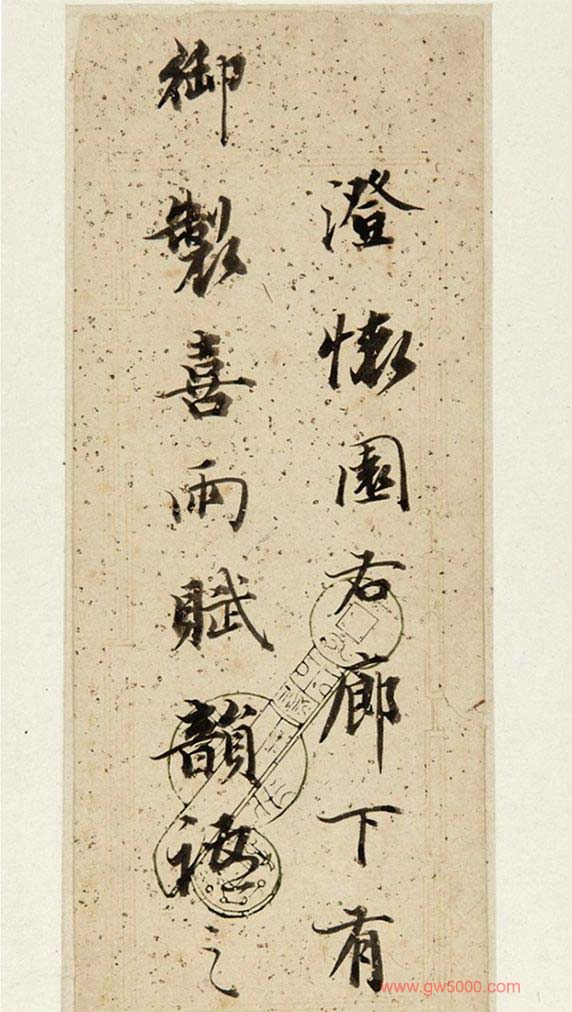 澄懷園右廊下有
御製喜雨賦韻之
www.gw5000.com